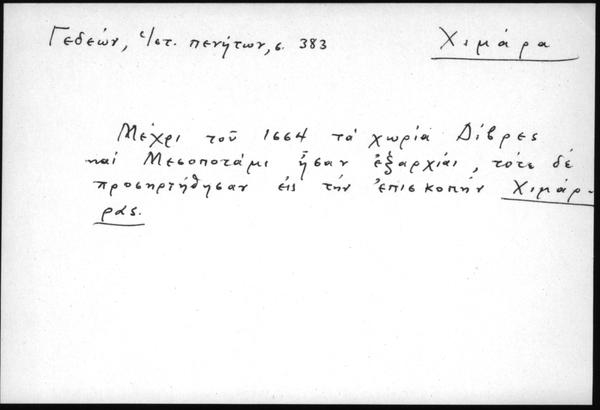 Γεδεών, Ἱστ. πενήτων, σ. 383
Χιμάρα
Μέχρι τοῦ 1664 τά χωρία Δίβρες
καί Μεσοποτάμι ἦσαν ἐξαρχίαι, τότε δέ
προσηρτήθησαν εἰς τήν ἐπισκοπήν Χιμάρ-
ρας.